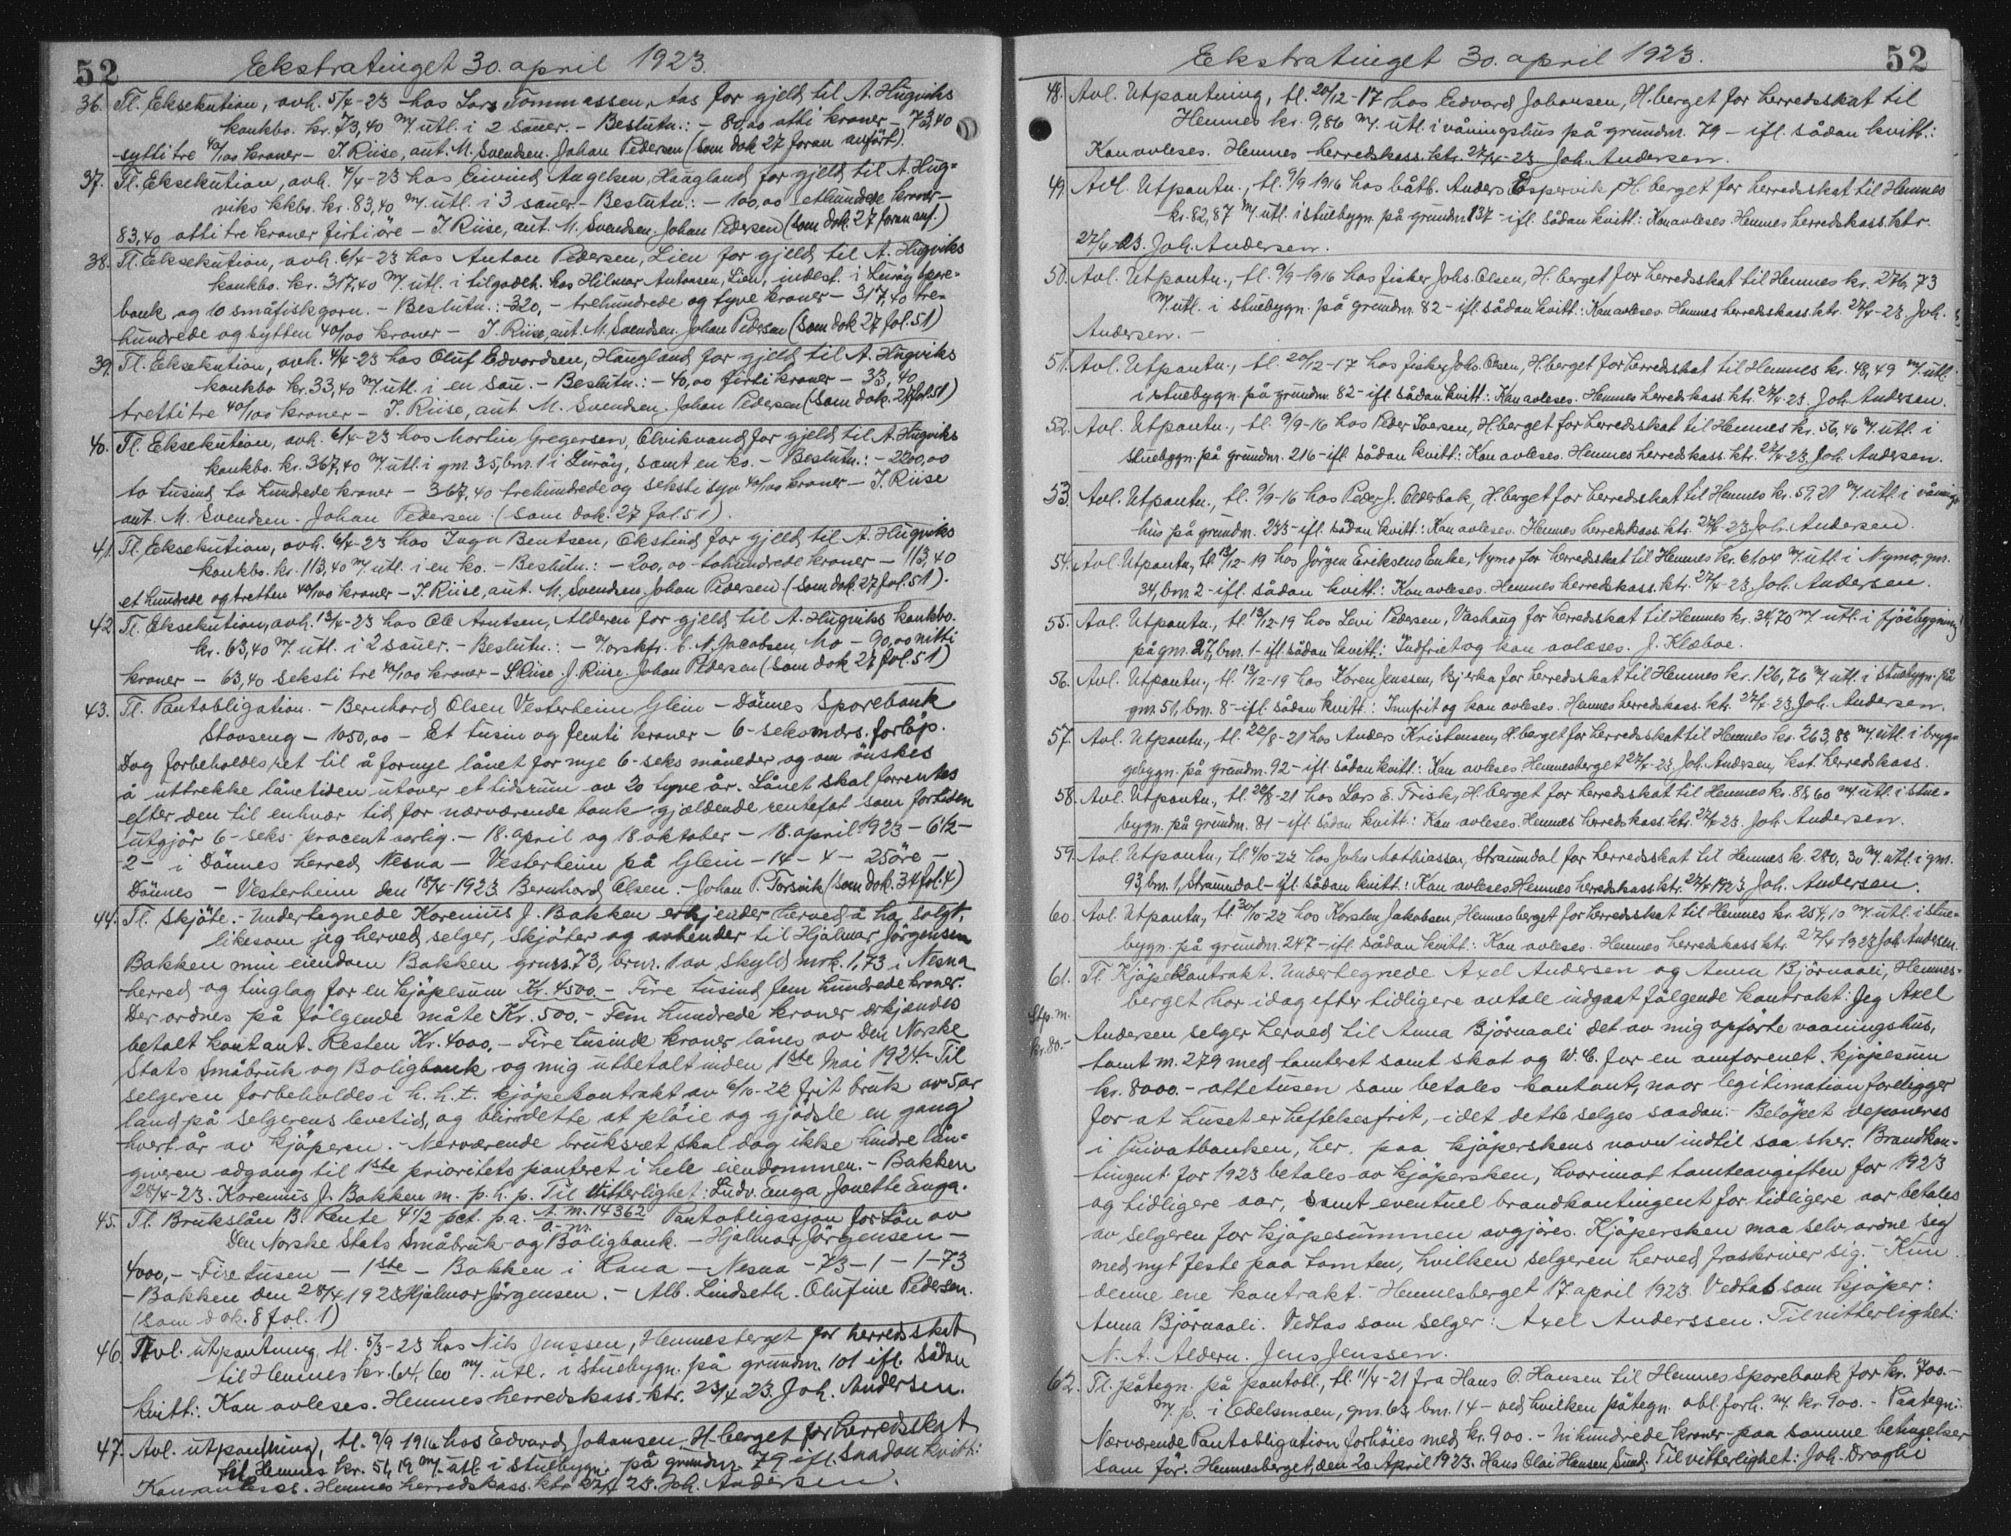 52
Ekstratinget 30. april 1923.
36. Tl. Eksekution, avh. 5/4-23 hos Lars Tommassen, for gjeld til A. Hugviks
konkbo. kr. 73,40 m/ utl. i 2 sauer. - Beslutn.: - 80,00 otti kroner - 73,40
syttitre 40/100 kroner - J. Riise, aut. M. Svendsen. Johan Pedersen (som dok 27 foran anført).
37. Tl. Eksekution, avh. 4/4-23 hos Eivind Angelsen, Haagland for gjeld til A. Hug=
viks kkbo. kr. 83,40 m/ utl. i 3 sauer - Beslutn.: - 100,00 ethundrede kroner -
83,40 otti tre kroner firti öre - J. Riise, aut. M. Svendsen. Johan Pedersen (som dok. 27 foran anf.)
38. Tl. Eksekution, avh. 6/4-23 hos Anton Pedersen, Lien for gjeld til A. Hugviks
konkbo. kr. 317,40 m/ utl. i tilgodeh. hos Hilmar Antonsen, Lien, indest. i Luröy spare=
bank, og 10 småfiskgarn. - Beslutn.: - 320, - trehundrede og tyve kroner - 317,40 tre=
hundrede og sytten 40/100 kroner - J. Riise, aut. M. Svendsen. Johan Pedersen (som dok 27 fol. 51)
39. Tl. Eksekution, avh. 4/4-23 hos Oluf Edvardsen, Haugland for gjeld til A. Hugviks
konkbo kr. 33,40 m/ utl. i en sau. - Beslutn.: - 40,00 firti kroner - 33,40
trettitre 40/100 kroner - J. Riise, aut. M. Svendsen. Johan Pedersen (som dok. 27 fol. 51)
40. Tl. Eksekution, avh. 6/4-23 hos Martin Gregersen, Olvikvand for gjeld til A. Hugviks
konkbo. kr. 367,40 m/ utl. i gnr. 35, bnr. 1 i Luröy, samt en ko. - Beslutn.: - 2200,00
to tusind to hundrede kroner - 367,40 trehundrede og seksti syv 40/100 kroner - J. Riise
aut. M. Svendsen. Johan Pedersen. (som dok. 27 fol. 51).
41. Tl. Eksekution, avh. 6/4-23 hos Inga Bentsen, Okstind for gjeld til A. Hugviks
konkbo. kr. 113,40 m/ utl. i en ko. - Beslutn.: - 200,00 - tohundrede kroner - 113,40
et hundrede og tretten 40/100 kroner - J. Riise, aut. M. Svendsen. Johan Pedersen (som dok. 27 fol. 51).
42. Tl. Eksekution, avh. 13/4-23 hos Ole Arntsen, Alderen for gjeld til A. Hugviks konkbo.
kr. 63,40 m/ utl. i 2 sauer. - Beslutn.: - C. N. Jacobsen, Mo - 90,00 nitti
kroner - 63,40 seksti tre 40/100 kroner - J. Riise. Johan Pedersen (som dok. 27 fol. 51)
43. Tl. Pantobligation. - Bernhard Olsen Vesterheim Glein - Dönnes Sparebank
Stavseng - 1050,00 - Et tusin og femti kroner - 6-seks mdrs. forløp.
Dog forbeholdes ret til å fornye lånet for nye 6-seks måneder og om önskes
å uttrekke lånetiden utover et tidsrum av 20 tyve år. Lånet skal forrentes
efter den til enhver tid for nærværende bank gjældende rentefot som fortiden
utgjør 6-seks procent aarlig. - 18. april og 18. oktober - 18. april 1923 - 6 1/2 -
2 - i Dönnes herred, Nesna - Vesterheim på Glein - 14 - 4 - 25 öre -
Dönnes - Vesterheim den 18/4-1923 Bernhard Olsen. - Johan P. Forsvik (som dok. 34 fol. 4)
44. Tl. Skjöte. - Undertegnede Korenius J. Bakken erkjender herved å ha solgt,
likesom jeg herved selger, skjöter og avhender til Hjalmar Jörgensen
Bakken min eiendom Bakken grnr. 73, brnr. 1 av skyld mrk. 1,73 i Nesna
herred og tinglag for en kjöpesum Kr. 4500. - Fire tusind fem hundrede kroner.
Der ordnes på fölgende måte Kr. 500. - Fem hundrede kroner erkjendes
betalt kontant. Resten Kr. 4000. - Fire tusinde kroner lånes av Den Norske
Stats Småbruk og Boligbank og mig utbetalt inden 1ste Mai 1924. - Til
selgeren forbeholdes i h. h. t. kjöpekontrakt av 6/10-22 frit bruk av 5 ar
land på selgerens levetid, og blir dette at plöie og gjödsle en gang
hvert år av kjöperen. - Nerværende bruksret skal dog ikke hindre lån=
giveren adgang til 1ste prioritets panteret i hele eiendommen. - Bakken
28/4-23. Korenius J. Bakken m. p. h. p. Til vitterlighet: Ludv. Enga Jonette Enga.
45. Tl. Brukslån B. Rente 4 1/2 pct. p.a. A.-nr. 14362 Pantobligasjon for Lån av
Den Norske Stats Småbruk- og Boligbank. - Hjalmar Jörgensen -
4000,- Fire tusen - 1ste - Bakken i Rana - Nesna - 73 - 1 - 1-73
- Bakken den 28/4 1923 Hjalmar Jörgensen. - Alb. Lindseth. Olufine Pedersen.
(som dok. 8 fol. 1)
46. Avl. utpantning, tl. 5/3-23 hos Nils Jenssen, Hemnesberget for herredsskat
til Hemnes kr. 64,60 m/ utl. i stuebygn. på grundnr. 101 ifl. sådan
kvitt: Kan avleses. Hemnes herredskass. ktr. 23/4 23. Joh. Andersen.
47. Avl. utpantning, tl. 9/9 1916 hos Edvard Johansen, H.berget for herredsskat
til Hemnes kr. 51,19 m/ utl. i stuebygn. på grundnr. 79 ifl. saadan kvitt:
Kan avleses. Hemnes herredskass. ktr. 27/4 23. Joh. Andersen.
52
Ekstratinget 30. april 1923.
48. Avl. Utpantning, tl. 20/12-17 hos Edvard Johansen, H.berget for herredsskat til
Hemnes kr. 9,86 m/ utl. i våningshus på grundnr. 79 - ifl. sådan kvitt.:
Kan avleses. Hemnes herredskass. ktr. 27/4-23 Joh. Andersen.
49. Avl. Utpantn., tl. 9/9 1916 hos båtb. Anders Espervik, H.berget for herredsskat til Hemnes
kr. 82,87 m/ utl. i stuebygn. på grundnr. 137 - ifl. sådan kvitt: Kan avleses Hemnes herredskass. ktr.
27/4-23. Joh. Andersen.
50. Avl. Utpantn., tl. 9/9-1916 hos fisker Johs. Olsen, H.berget for herredsskat til Hemnes kr. 276,73
m/ utl. i stuebygn. på grundnr. 82 - ifl. sådan kvitt.: Kan avleses. Hemnes herredskass. ktr. 27/4-23. Joh.
Andersen. -
51. Avl. Utpantn., tl. 20/12-17 hos fisker Johs. Olsen, H.berget for herredsskat til Hemnes kr. 48,49 m/ utl.
i stuebygn. på grundnr. 82 - ifl. sådan kvitt.: Kan avleses. Hemnes herredskass. ktr. 27/4-23 Joh. Andersen.
52. Avl. Utpantn., tl. 9/9-16 hos Peder Iversen, H.berget for herredsskat til Hemnes kr. 56,46 m/ utl. i
stuebygn. på grundnr. 216 - ifl. sådan kvitt.: Kan avleses. Hemnes herredskass. ktr. 27/4-23. Joh. Andersen.
53. Avl. Utpantn., tl. 9/9-16 hos Peder J. Olderbak, H.berget for herredsskat til Hemnes kr. 59,21 m/ utl. i vånings=
hus på grundnr. 233 - ifl. sådan kvitt: Kan avleses. Hemnes herredskass. ktr. 27/4-23 Joh. Andersen.
54. Avl. Utpantn., tl. 13/12-19 hos Jörgen Eriksens Enke, Nymo for herredsskat til Hemnes kr. 61,04 m/ utl. i Nymo, gnr.
34, bnr. 2 - ifl. sådan kvitt.: Kan avleses. Hemnes herredskass. ktr. 27/4-23, Joh. Andersen.
55. Avl. Utpantn., tl. 13/12-19 hos Levi Pedersen, Varhaug for herredsskat til Hemnes kr. 34,70 m/ utl. i fjösbygning
på gnr. 27, bnr. 1 - ifl. sådan kvitt.: Indfriet og kan avlæses. J. Klæboe.
56. Avl. Utpantn., tl. 13/12-19 hos Koren Jenssen, Bjerka for herredsskat til Hemnes kr. 126,76 m/ utl. i stuebygn. på
gnr. 51, bnr. 8 - ifl. sådan kvitt.: Innfrit og kan avleses. Hemnes herredskass. ktr. 27/4-23, Joh. Andersen.
57. Avl. Utpantn., tl. 22/8-21 hos Anders Kristensen, H.berget for herredsskat til Hemnes kr. 263,88 m/ utl. i brygge
gebygn. på grundnr. 92 - ifl. sådan kvitt.: Kan avleses. Hemnesberget 27/4-23. Joh. Andersen, kst. herredskass.
58. Avl. Utpantn., tl. 22/8-21 hos Lars E. Trisk, H.berget for herredsskat til Hemnes kr. 88,60 m/ utl. i stue=
bygn. på grundnr. 81 - ifl. sådan kvitt.: Kan avleses. Hemnes herredskass. ktr. 27/4-23. Joh. Andersen.
59. Avl. Utpantn., tl. 4/10-22 hos John Mathiassen, Straumdal for herredsskat til Hemnes kr. 280,30 m/ utl. i gnr.
93, bnr. 1, Straumdal - ifl. sådan kvitt.: Kan avleses Hemnes herredskass. ktr. 27/4 1923, Joh. Andersen.
60. Avl. Utpantn., tl. 30/10-22 hos Korsten Jakobsen, Hemnesberget for herredsskat til Hemnes kr. 254,10 m/ utl. i stue=
bygn. på grundnr. 247 - ifl. sådan kvitt.: Kan avleses. Hemnes herredskass. ktr. 27/4 1923 Joh. Andersen.
61. Tl. Kjöpekontrakt. Undertegnede Axel Andersen og Anna Björnaali, Hemnes=
berget har idag efter tidligere avtale indgaat fölgende kontrakt: Jeg Axel
Stp. m.
kr. 80.-
Andersen selger herved til Anna Björnaali det av mig opförte vaaningshus,
tomt nr. 279 med tomteret samt skot og W. C. for en omforenet kjøpesum
kr. 8000. - ottetusen som betales kontant, naar legitimation foreligger
for at huset er heftelsesfrit, - idet dette selges saadan. - Belöpet deponeres
i Privatbanken, her, paa kjöperskens navn indtil saa sker. Brandkon=
tingent for 1923 betales av kjöpersken, hvorimot tomteavgiften for 1923
og tidligere aar, samt eventuel brandkontingent for tidligere aar betales
av selgeren før kjöpesummen avgjöres. Kjöpersken maa selv ordne sig
med nyt feste paa tomten, hvilken selgeren herved fraskriver sig. - Kun
denne ene kontrakt. - Hemnesberget 17. april 1923. Vedtas som kjöper:
Anna Björnaali. Vedtas som selger: Axel Anderssen. Til vitterlighet:
N. A. Aldern. Jens Jenssen.
62. Tl. påtegn. på pantobl., tl. 11/4-21 fra Hans O. Hansen til Hemnes Sparebank for kr. 700.-
m/ p. i Edelsmoen, gnr. 63, bnr. 14 - ved hvilken påtegn. obl. forh. m/ kr. 900. - Paategn:
Nærværende Pantobligation forhöies med kr. 900. - Ni hundrede kroner paa samme betingelser
som för. Hemnesberget, den 20 April 1923. Hans Olai Hansen Sund. Til vitterlighet: Joh. Draghi